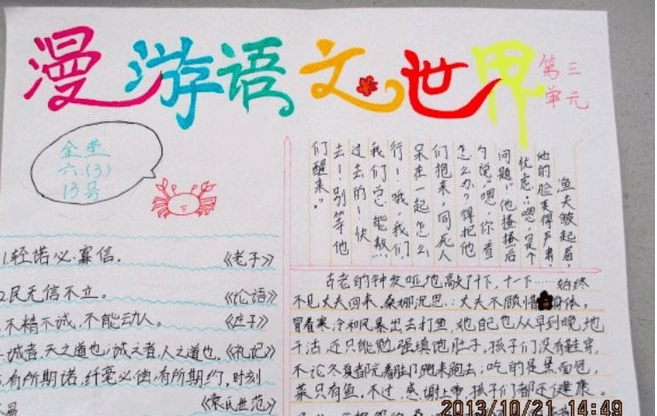 漫游语文世界
第三
单元
金堂
六.(3)
13号
渔夫皱起眉,
他的脸变得严肃,
忧虑。“嗯,是个
问题!”他搔搔后
脑勺说,“嗯,你看
怎么办?得把他
们抱来,同死人
呆在一起怎么
行!哦,我们,我们
总能熬过去的!快
去!别等他
们醒来。”
1.轻诺必寡信。《老子》
2.民无信不立。《论语》
不精不诚,不能动人。《庄子》
诚者,天之道也;诚之者,人之道也。《礼记》
有所期诺,纤毫必偿;有所期约,时刻
《袁氏世范》
古老的钟发哑地敲了十下,十一下……始终
不见丈夫回来。桑娜沉思:丈夫不顾惜身体,
冒着寒冷和风暴出去打鱼,她自己也从早到晚地
干活,还只能勉强填饱肚子。孩子们没有鞋穿,
不论冬夏都光着脚跑来跑去;吃的是黑面包,
菜只有鱼。不过,感谢上帝,孩子们都还健康。
2013/10/21 14:49